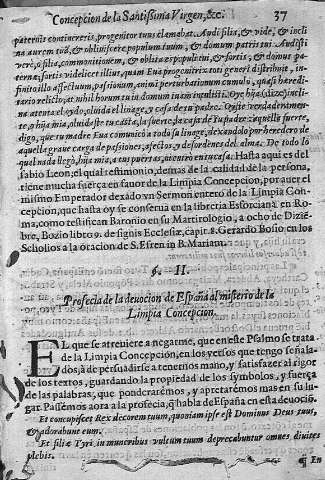 Concepcion de la Santissima Virgen, &c. 37
paternis contineris, progenitor tuus clamabat. Audi filia, & vide, & incli
na aurem tuã, & obliviscere populum tuum, & domum patris tui. Audisti
verè, o filia, commonitionem, & oblita es populi tui, & sortis, & domus pa
ternæ; sortis videlicet illius, quam Eua progenitrix toti generi distribuit, in-
finito illo affectuum, passionum, animi perturbationum cumulo, quasi heredi-
tario relicto, at nihil horum tu in domum tuam intulisti. Oye hija (dize) incli
na atenta el oydo, oluida el linage, y casa de tu padre. Oyste verdaderamen-
te, ò hija mia, oluidaste tu casta, la suerte, la casa de tu padre: aquella suerte,
digo, que tu madre Eua comunicò a todo su linage, dexandolo por heredero de
aquella graue carga de passiones, afectos, y desordenes del alma. De todo lo
qual nada llegò, hija mia, a tus puertas, ni entro en tu casa. Hasta aqui es del
sabio Leon, el qual testimonio, demas de la calidad de la persona,
tiene mucha fuerça en fauor de la Limpia Concepcion, por auer el
mismo Emperador dexado vn Sermon entero de la Limpia Con-
cepcion, que hasta oy se conserua en la libreria Esforciana en Ro-
ma, como testifican Baronio en su Martirologio, a ocho de Dizië-
bre, Bozio libro 9. de signis Ecclesiæ, capit. 8. Gerardo Bosio en los
Scholios a la oracion de S. Efren in B. Mariam.
§. II.
Profecia de la deuocion de España al misterio de la
Limpia Concepcion.
EL que se atreuiere a negarme, que en este Psalmo se trata
de la Limpia Concepcion, en los versos que tengo señala-
dos; à de persuadirse a tenernos mano, y satisfazer al rigor
de los textos, guardando la propiedad de los symbolos, y fuerça
de las palabras, que ponderarèmos, y apretarèmos mas en su lu-
gar. Passemos aora a la profecia, q̃ habla de España en esta deuociõ.
Et concupiscet Rex decorem tuum, quoniam ipse est Dominus Deus tuus,
& adorabunt eum.
Et filiæ Tyri, in muneribus vultum tuum deprecabuntur omnes diuites
plebis.
¶ En